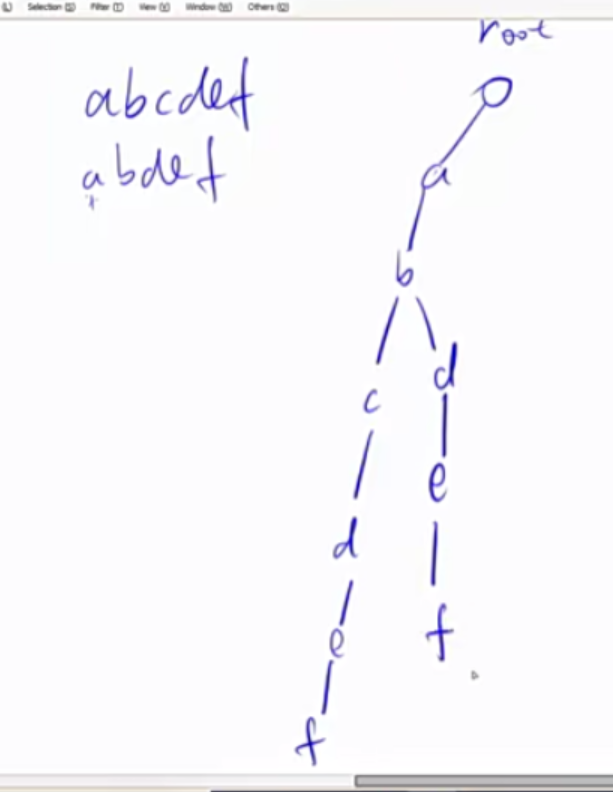 Selection (S) Filter (T) View (V) Window (W) Others (O)
root
abcdef
abdef
a
b
c
d
d
e
e
f
f